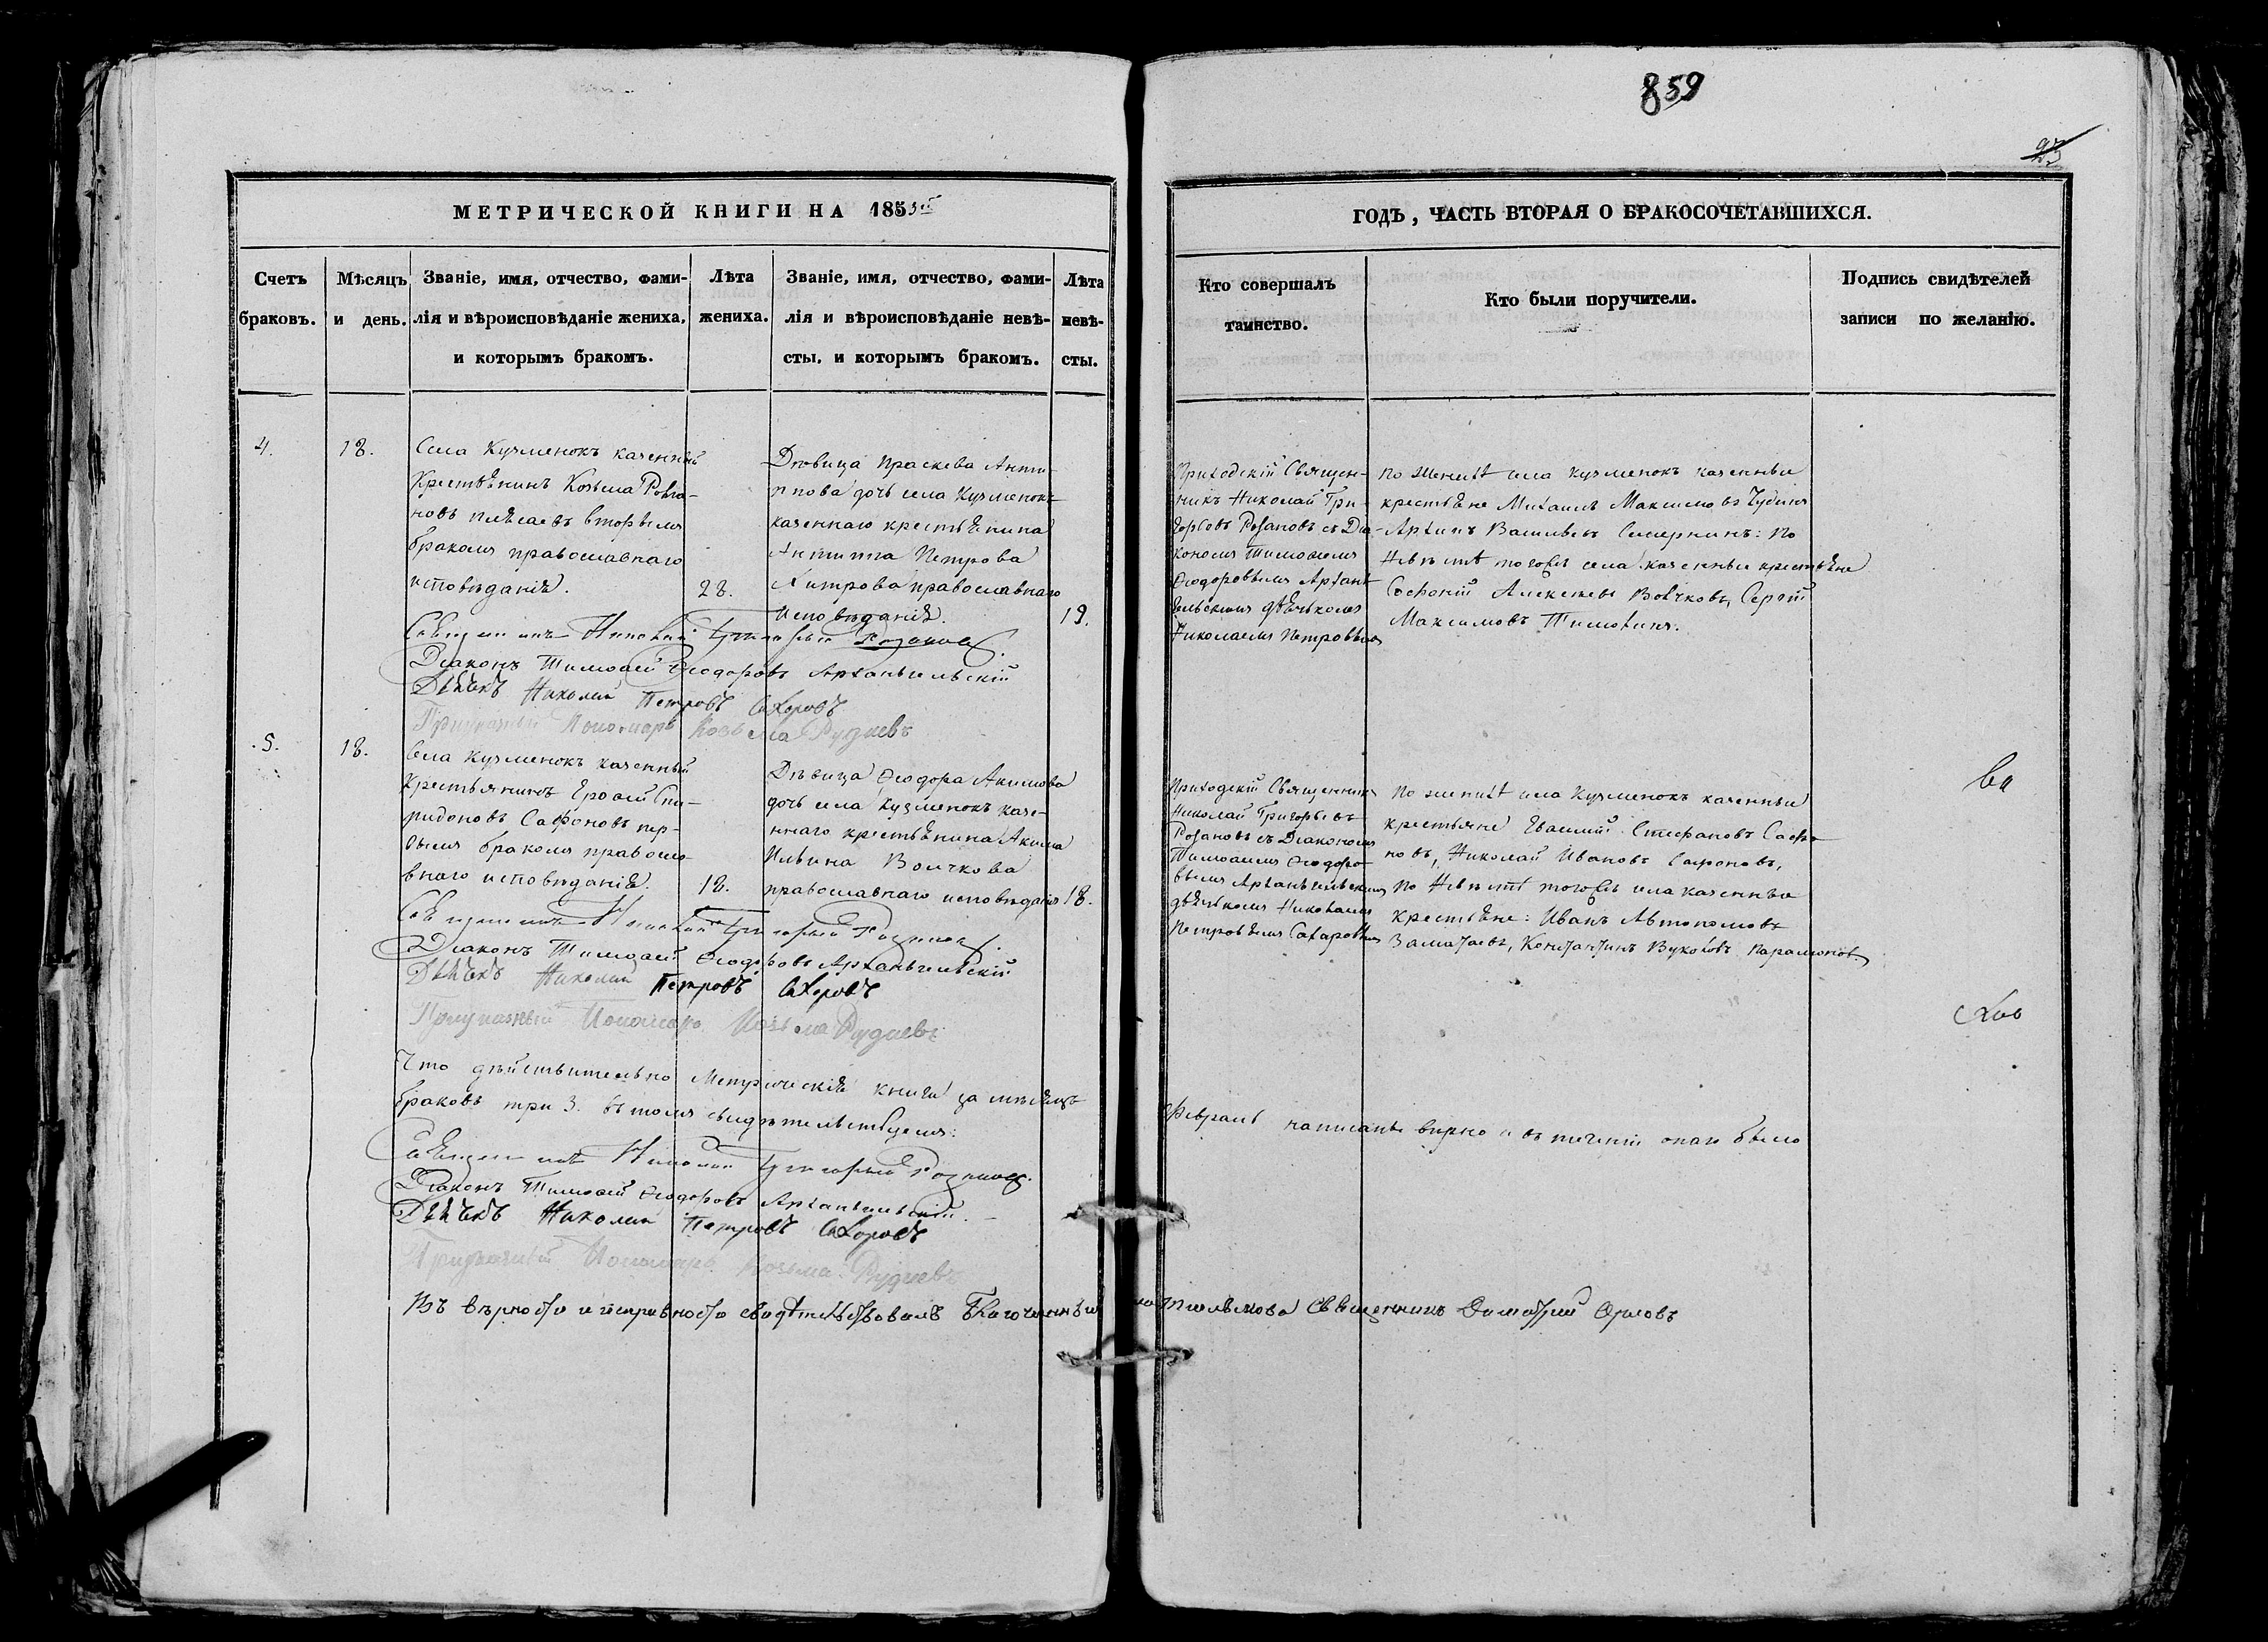 859
23
МЕТРИЧЕСКОЙ КНИГИ НА 1853й
ГОДЪ, ЧАСТЬ ВТОРАЯ О БРАКОСОЧЕТАВШИХСЯ.
Счетъ
браковъ.
Мѣсяцъ
и день.
Званіе, имя, отчество, фами-
лія и вѣроисповѣданіе жениха,
и которымъ бракомъ.
Лѣта
жениха.
Званіе, имя, отчество, фами-
лія и вѣроисповѣданіе невѣ-
сты, и которымъ бракомъ.
Лѣта
невѣ-
сты.
Кто совершалъ
таинство.
Кто были поручители.
Подпись свидѣтелей
записи по желанію.
4.
18.
Села Кузменокъ казенный
Крестьянинъ Козьма
новъ вторымъ
бракомъ православнаго
исповѣданія.
28.
Дѣвица Праскева Анти-
пова дочь села Кузменокъ
казеннаго крестьянина
Антипа Петрова
Хитрова православнаго
исповѣданія.
19.
Приходскій Священ-
никъ Николай Гри-
горьевъ Розановъ съ Діа-
кономъ Тимофеемъ
Ѳеодоровымъ Архан-
гельскимъ дьячкомъ
Николаемъ Петровымъ
По женихѣ села Кузменокъ казенные
крестьяне Михаилъ Максимовъ Чудинъ
Архипъ Васильевъ Семернинъ: По
Невѣстѣ тогожъ села казенные крестьяне
Софоній Алексеевъ Волчковъ, Сергій
Максимовъ Тимохинъ.
Священникъ Николай Григорьевъ Розановъ.
Діаконъ Тимофей Ѳеодоровъ Архангельскій
Дьячекъ Николай Петровъ Сахоровъ
Пономарь Козьма Рудневъ
5.
18.
Села Кузменокъ казенный
Крестьянинъ Ерофей Спи-
ридоновъ Сафоновъ пер-
вымъ бракомъ православ-
внаго исповѣданія.
18.
Дѣвица Ѳеодора Акимова
дочь села Кузменокъ казе-
ннаго крестьянина Акима
Ильина Волчкова
православнаго исповѣданія
18.
Приходскій Священникъ
Николай Григорьевъ
Розановъ съ Діакономъ
Тимофеемъ Ѳеодоро-
вымъ Архангельскимъ
дьячкомъ Николаемъ
Петровымъ Сахаровымъ
По женихѣ села Кузменокъ казенные
крестьяне Евсигній Стефановъ Сафо-
новъ, Николай Ивановъ Сафоновъ,
По Невѣстѣ тогожъ села казенные
крестьяне: Иванъ Автономовъ
Заматаевъ, Константинъ Вуколовъ Парамоновъ.
Священникъ Николай Григорьевъ Розановъ.
Діаконъ Тимофей Ѳеодоровъ Архангельскій
Дьячекъ Николай Петровъ Сахоровъ
Пономарь Козьма Рудневъ
Что дѣйствительно Метрическія книги за мѣсяцъ
Февраль написаны вѣрно и въ теченіи онаго было
браковъ три 3. въ томъ свидѣтельствуемъ:
Священникъ Николай Григорьевъ Розановъ.
Діаконъ Тимофей Ѳеодоровъ Архангельскій.
Дьячекъ Николай Петровъ Сахоровъ
Пономарь Козьма Рудневъ
Въ вѣрности и исправности свидѣтельствовалъ Благочинный Священникъ Димитрій Орловъ